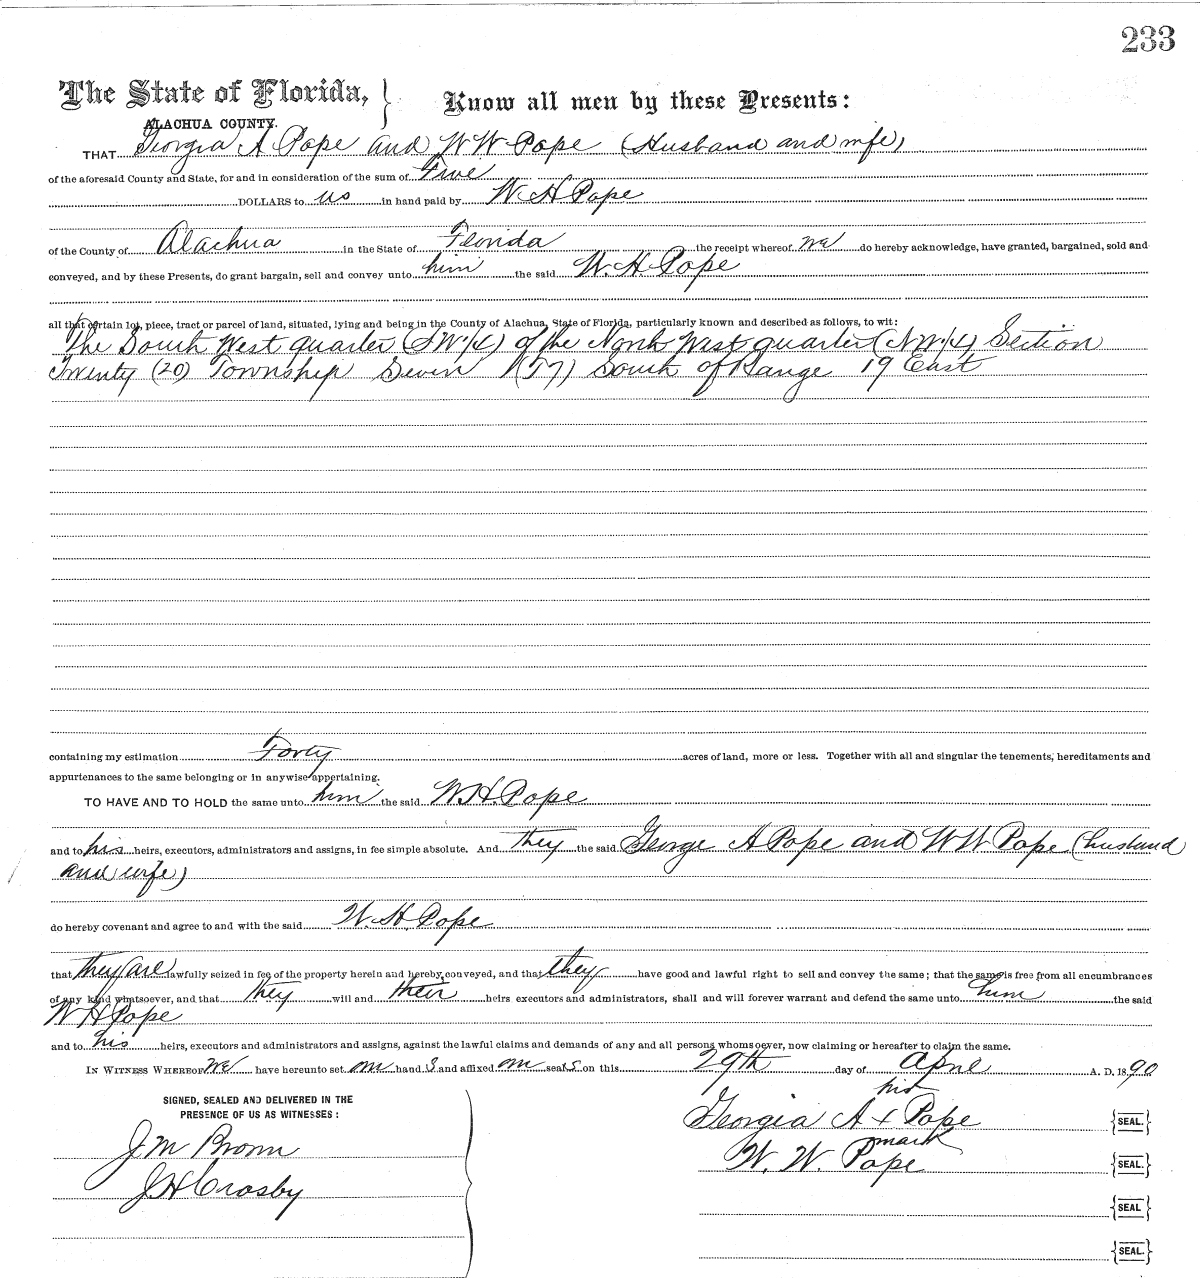 233
The State of Florida, } Know all men by these Presents:
ALACHUA COUNTY.
THAT Georgia A Pope and W W Pope (Husband and wife)
of the aforesaid County and State, for and in consideration of the sum of Five
DOLLARS to us in hand paid by W H Pope
of the County of Alachua in the State of Florida the receipt whereof we do hereby acknowledge, have granted, bargained, sold and
conveyed, and by these Presents, do grant bargain, sell and convey unto him the said W. H. Pope
all that certain lot, piece, tract or parcel of land, situated, lying and being in the County of Alachua, State of Florida, particularly known and described as follows, to wit:
The South West quarter (SW 1/4) of the North West quarter (NW 1/4) Section
Twenty (20) Township Seven (T7) South of Range 19 East
containing my estimation Forty acres of land, more or less. Together with all and singular the tenements, hereditaments and
appurtenances to the same belonging or in anywise appertaining.
TO HAVE AND TO HOLD the same unto him the said W. H. Pope
and to his heirs, executors, administrators and assigns, in fee simple absolute. And they the said George A Pope and W W Pope (husband
and wife)
do hereby covenant and agree to and with the said W. H. Pope
that they are lawfully seized in fee of the property herein and hereby conveyed, and that they have good and lawful right to sell and convey the same; that the same is free from all encumbrances
of any kind whatsoever, and that they will and their heirs executors and administrators, shall and will forever warrant and defend the same unto him the said
W H Pope
and to his heirs, executors and administrators and assigns, against the lawful claims and demands of any and all persons whomsoever, now claiming or hereafter to claim the same.
IN WITNESS WHEREOF we have hereunto set our hand s and affixed our seal s on this 29th day of April A. D. 1890
SIGNED, SEALED AND DELIVERED IN THE
PRESENCE OF US AS WITNESSES:
his
Georgia A + Pope {SEAL.}
mark
J M Brown
W. W. Pope {SEAL.}
J H Crosby
{SEAL}
{SEAL.}